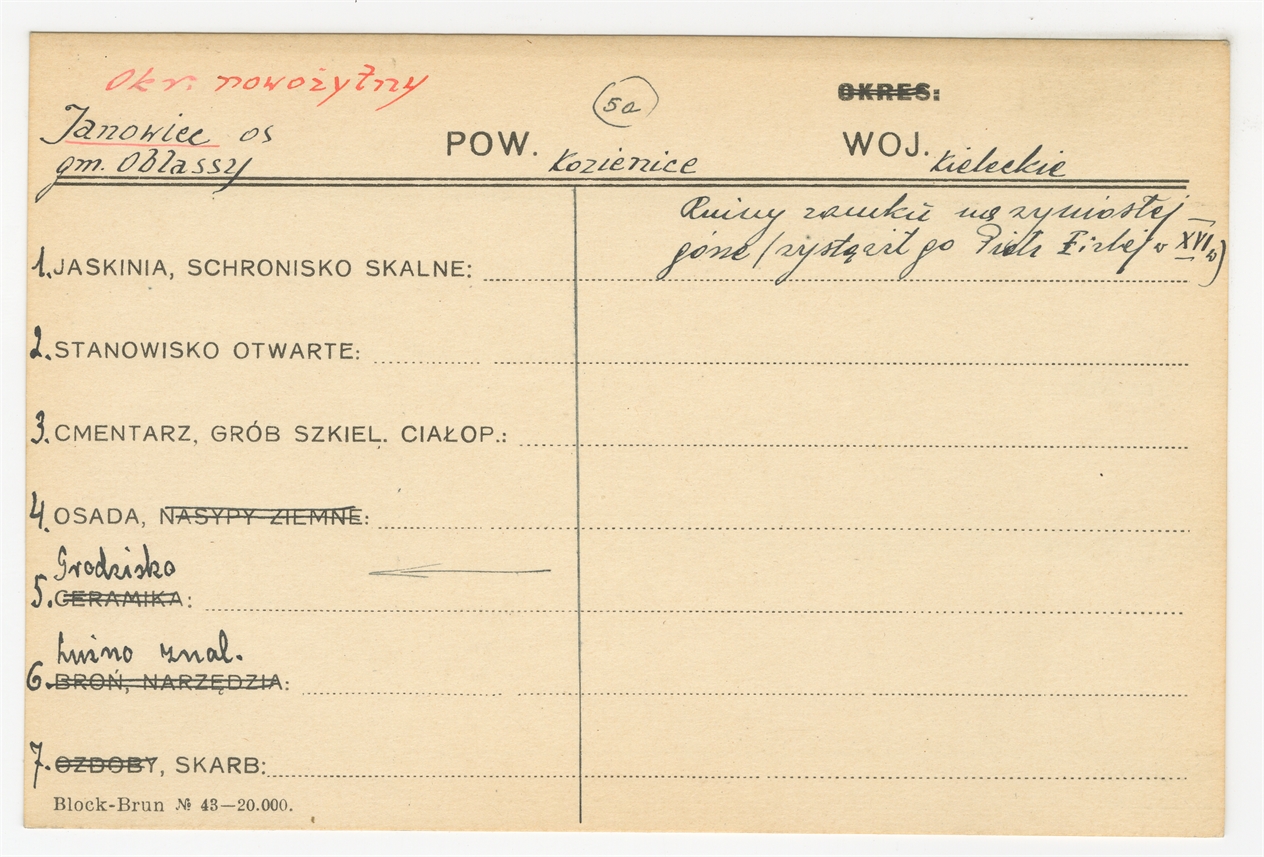 Okr. nowożytny
5a
OKRES:
Janowiec os
gm. Oblassy
POW. Kozienice
WOJ. Kieleckie
Ruiny zamku na wyniosłej
górze (wystawił go Piotr Firlej w XVI w)
1. JASKINIA, SCHRONISKO SKALNE:
2. STANOWISKO OTWARTE:
3. CMENTARZ, GRÓB SZKIEL. CIAŁOP.:
4. OSADA, NASYPY ZIEMNE:
Grodzisko
5. CERAMIKA:
Luźno znal.
6. BROŃ, NARZĘDZIA:
7. OZDOBY, SKARB:
Block-Brun № 43—20.000.